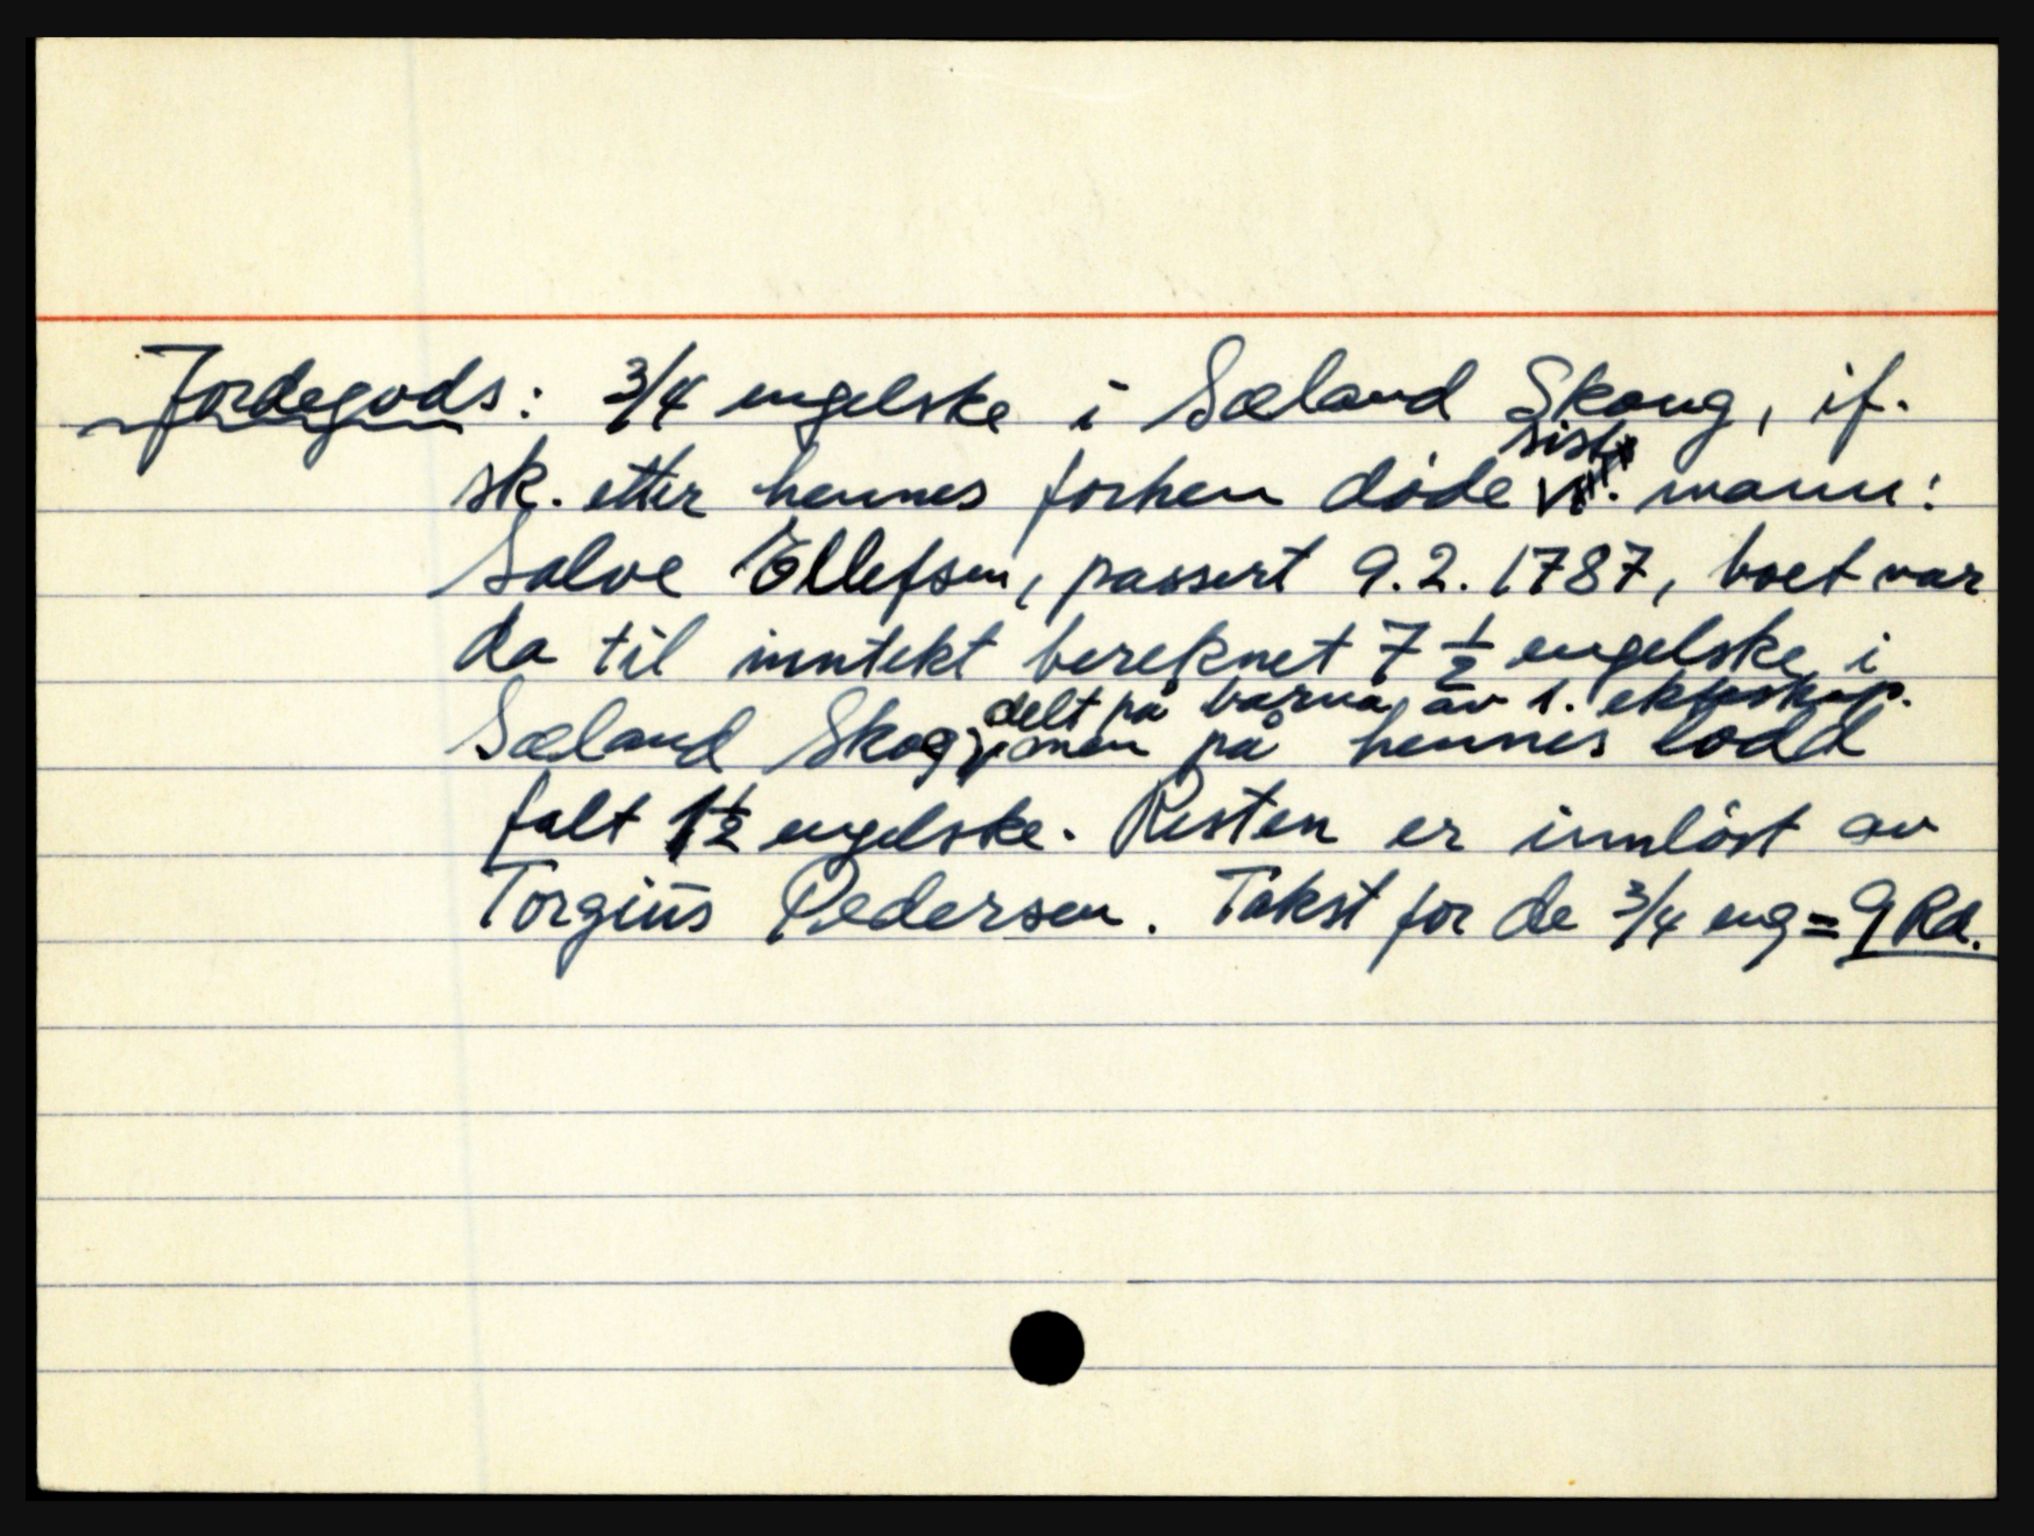 Jordegods: 3/4 engelske i Sæland Skoug, if.
sist
sk. etter hennes forhen døde mann:
Salve Ellefsen, passert 9.2. 1787, boet var
da til inntekt bereknet 7 1/2 engelske i
delt på barna av 1. ekteskap.
Sæland Skog, men på hennes lodd
falt 1 1/2 engelske. Resten er innløst av
Torgiüs Pedersen. Takst for de 3/4 eng = 9 Rd.